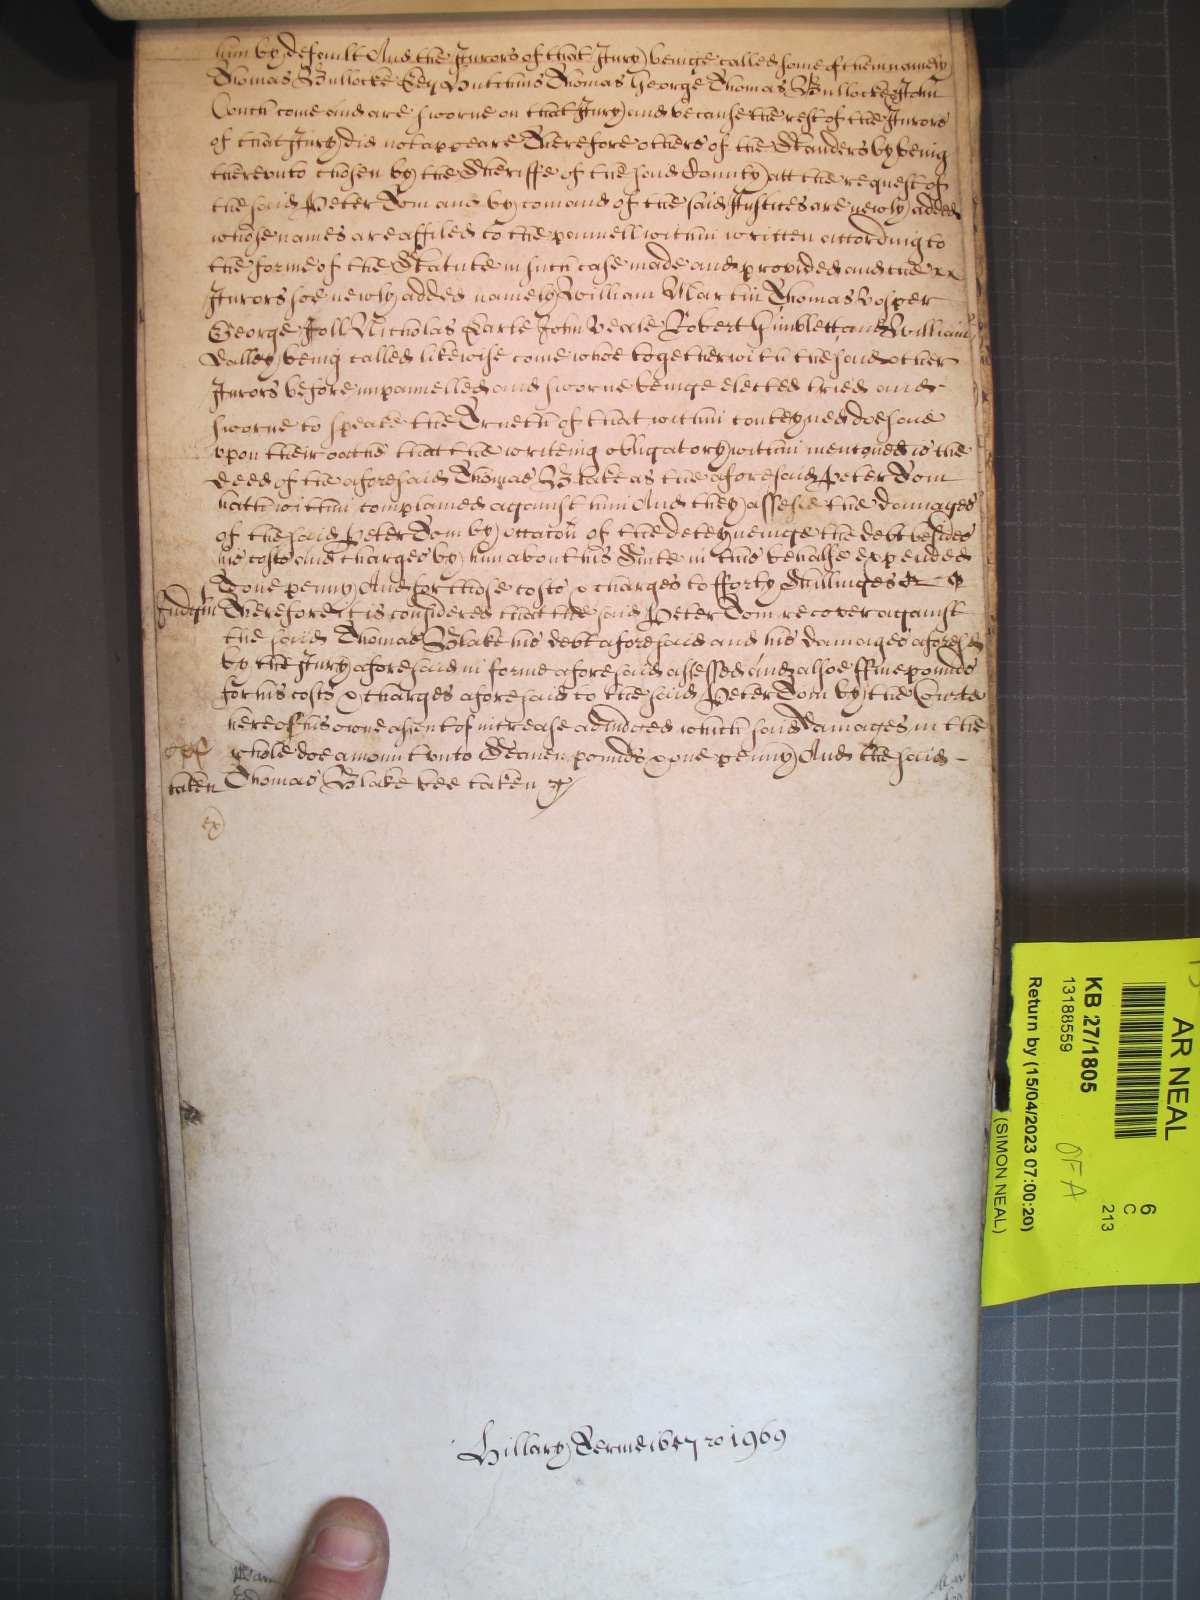 him by default And the Jurors of that Jury beinge called some of them namely
Thomas Bullocke Hutchins Thomas George Thomas Bullocke John
Couch come and are sworne on that Jury and because the rest of the Jurors
of that Jury did not appeare Therefore others of the Standers by being
thereunto chosen by the Sheriffe of the said County att the request of
the said Peter Tom and by comand of the said Justices are newly added
whose names are affiled to the pannell within written according to
the forme of the Statute in such case made and provided and the
Jurors soe newly added namely William Martin Thomas Vosper
George Joll Nicholas Earle John Veale Robert Himblett and William
Dalley being called likewise come whoe together with the said other
Jurors before impannelled and sworne beinge elected tried and
sworne to speake the Trueth of that within conteyned doe saie
upon their oathe that the writeing obligatory within menconed is the
deed of the aforesaid Thomas Blake as the aforesaid Peter Tom
hath within complained against him And they assesse the damages
of the said Peter Tom by occacon of the deteyneinge the debt besides
his costs and charges by him about his Suite in this behalfe expended
to one penny And for those costs & charges to fforty Shillinges
Judgm Therefore it is considered that the said Peter Tom recover against
the said Thomas Blake his debt aforesaid and his damages aforesd
by the Jury aforesaid in forme aforesaid assessed and alsoe ffive pounds
for his costs & charges aforesaid to the said Peter Tom by the Courte
here of his owne assent of increase adiudged which said damages in the
whole doe amount unto Seaven pounds & one penny And the said
taken Thomas Blake bee taken &
ex
Hillary Terme 1657 ro 1969
AR NEAL
KB 27/1805
13188559
Return by (15/04/2023 07:00:20)
(SIMON NEAL)
OFA
6
C
213